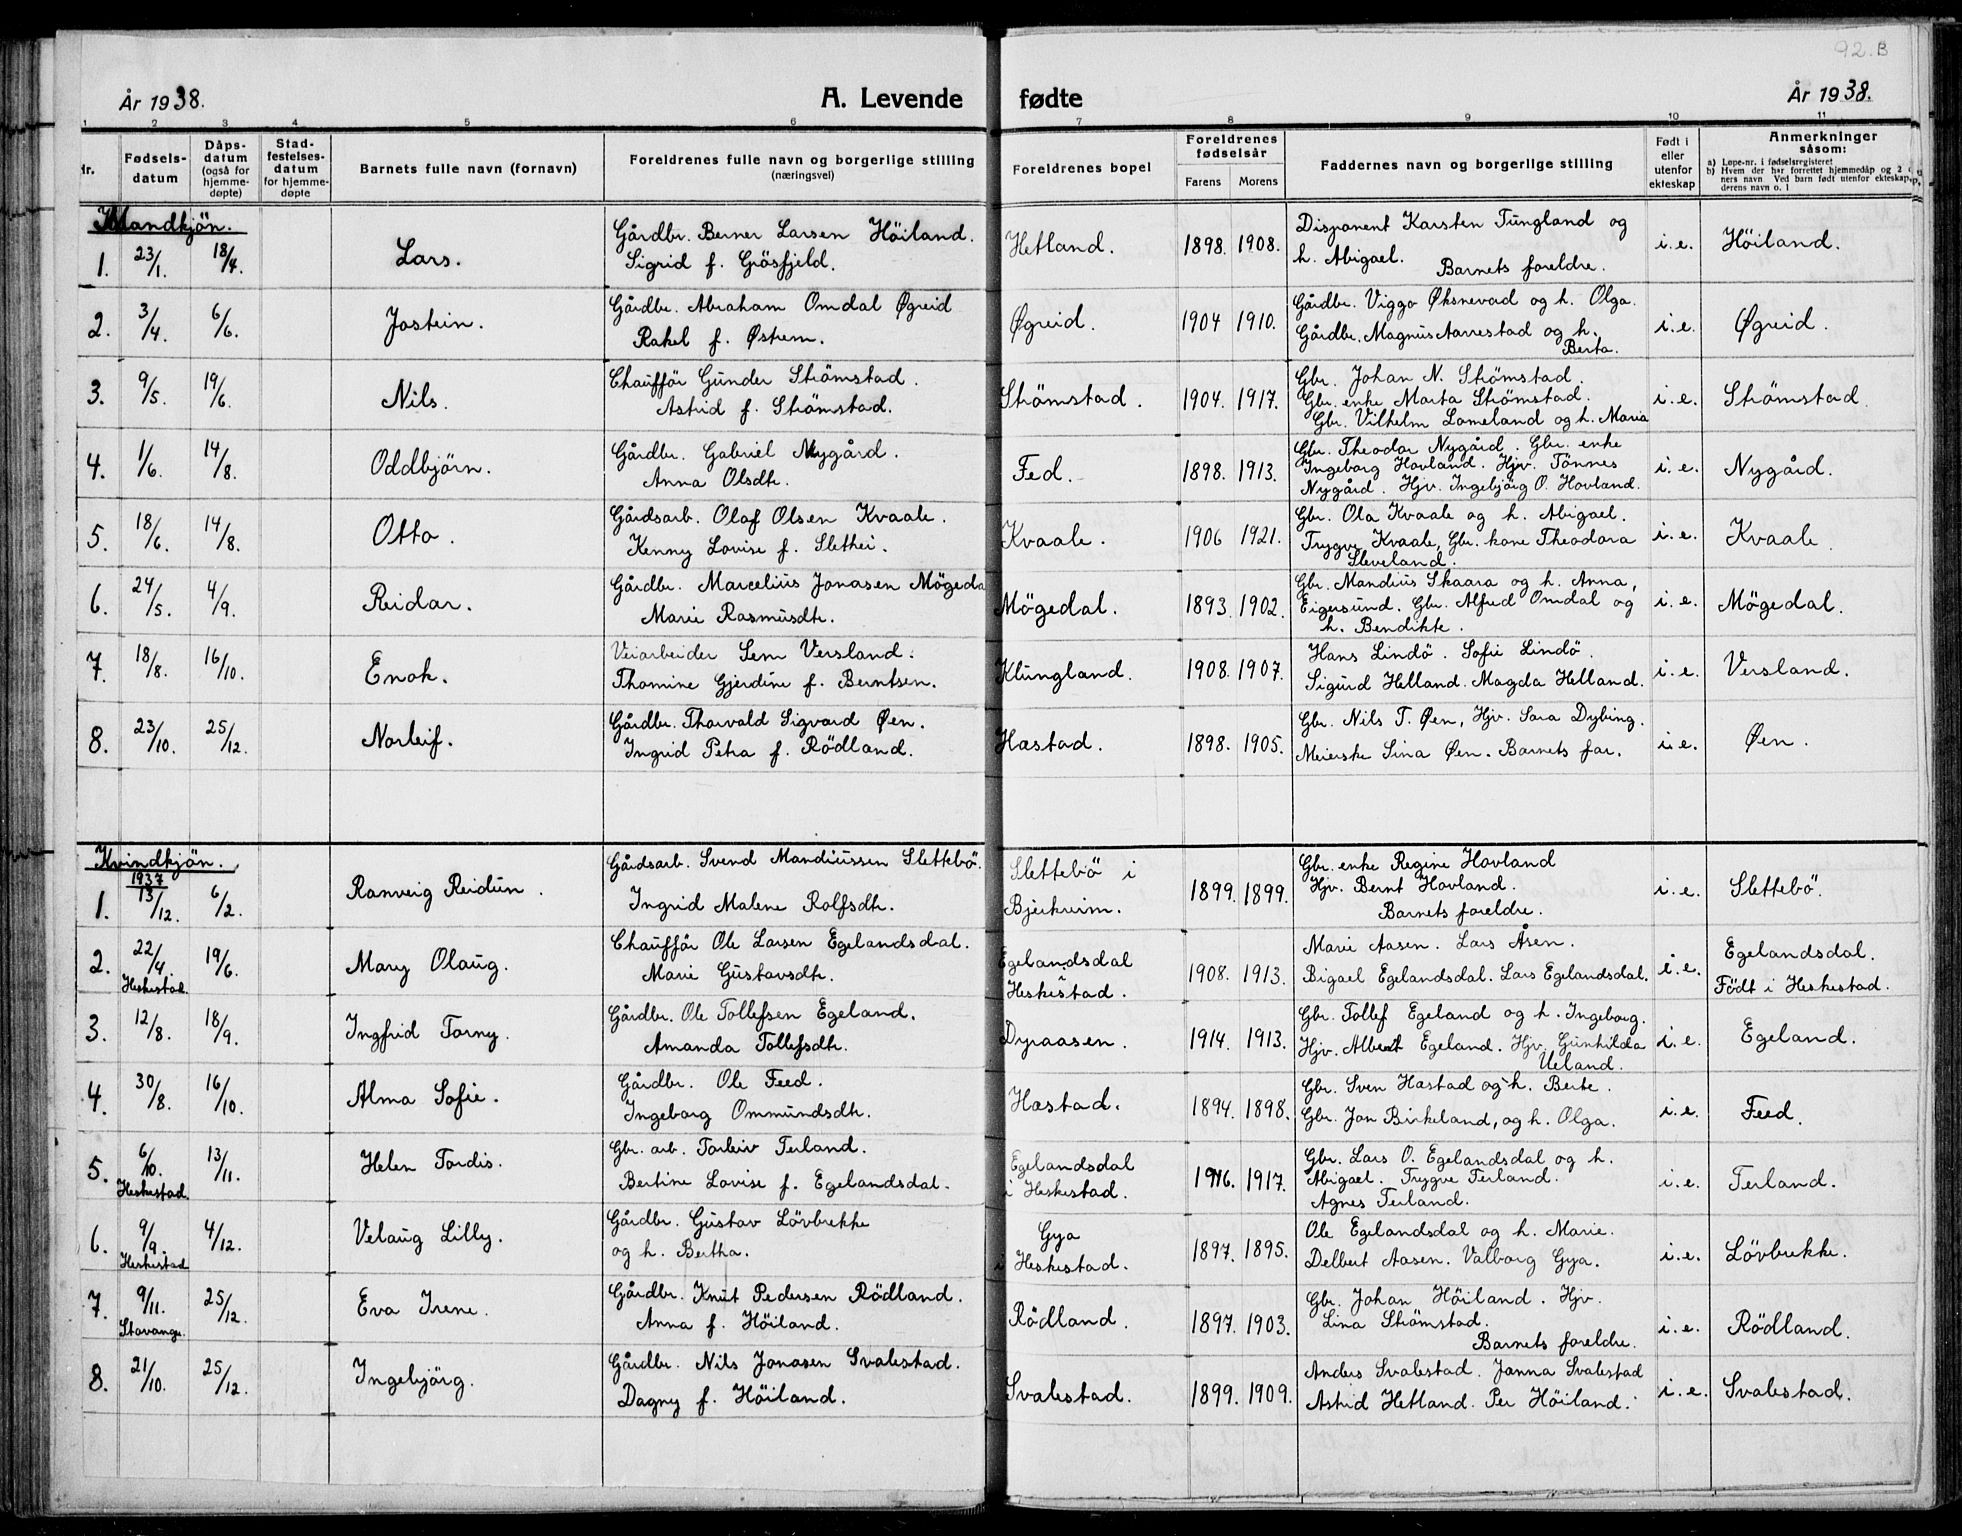 92. B
År 1938.
A. Levende fødte
År 1938.
1 2 3 4 5 6 7 8 9 10 11
Nr.
Fødsels-
datum
Dåps-
datum
(også for
hjemme-
døpte)
Stad-
festelses-
datum
for hjemme-
døpte
Barnets fulle navn (fornavn)
Foreldrenes fulle navn og borgerlige stilling
(næringsvei)
Foreldrenes bopel
Foreldrenes
fødselsår
Farens Morens
Faddernes navn og borgerlige stilling
Født i
eller
utenfor
ekteskap
Anmerkninger
såsom:
a) Løpe-nr. i fødselsregisteret
b) Hvem der har forrettet hjemmedåp og 2
ners navn Ved barn født utenfor ekteskap,
derens navn o. l
Mandkjön.
1. 23/1. 18/4. Lars. Gårdbr. Berner Larsen Höiland.
Sigrid f. Grösfjeld.
Hetland. 1898. 1908. Disponent Karsten Tungland og
h. Abigael.
Barnets foreldre.
i.e. Höiland.
2. 3/4. 6/6. Jostein. Gårdbr. Abraham Omdal Øgreid
Rakel f. Østrem.
Øgreid. 1904 1910. Gårdbr. Viggo Øksnevad og h. Olga.
Gårdbr. Magnus Aarrestad og h.
Berta.
i.e. Øgreid.
3. 9/5. 19/6. Nils. Chaufför Gunder Strömstad.
Astrid f. Strömstad.
Strömstad. 1904. 1917. Gbr. Johan N. Strömstad.
Gbr. enke Marta Strömstad.
Gbr. Vilhelm Lomeland og h. Maria
i.e. Strömstad
4. 1/6. 14/8. Oddbjörn. Gårdbr. Gabriel Nygård.
Anna Olsdtr.
Fed. 1898. 1913. Gbr. Theodor Nygård. Gbr. enke
Ingeborg Hovland. Hjv. Tönnes
Nygård. Hjv. Ingebjörg O. Hovland.
i.e. Nygård.
5. 18/6. 14/8. Otto. Gårdsarb. Olaf Olsen Kvaale.
Kenny Lovise f. Slethei.
Kvaale. 1906 1921. Gbr. Ola Kvaale og h. Abigael.
Trygve Kvaale, Gbr. kone Theodora
Sleveland.
i.e. Kvaale.
6. 24/5. 4/9. Reidar. Gårdbr. Marcelius Jonasen Mögeda
Marie Rasmusdtr.
Mögedal. 1893. 1902. Gbr. Mandius Skaara og h. Anna,
Eigersund. Gbr. Alfred Omdal og
h. Bendikte.
i.e. Mögedal.
7. 18/8. 16/10. Enok. Veiarbeider Sem Versland.
Thomine Gjerdine f. Berntsen.
Klungland. 1908. 1907. Hans Lindö. Sofie Lindö.
Sigurd Helland. Magda Helland.
i.e. Versland.
8. 23/10. 25/12. Norleif. Gårdbr. Thorvald Sigvard Øen.
Ingrid Petra f. Rödland.
Hæstad. 1898. 1905. Gbr. Nils T. Øen, Hjv. Sara Dybing.
Meierske Sina Øen. Barnets far.
i.e. Øen.
Kvindkjön.
1. 1937 13/12. 6/2. Ranveig Reidun. Gårdsarb. Svend Mandiussen Slettebö.
Ingrid Malene Rolfsdtr.
Slettebö i
Bjerkreim.
1899. 1899. Gbr. enke Regine Hovland
Hjv. Bernt Hovland.
Barnets foreldre.
i.e. Slettebö.
2. 22/4. Heskestad. 19/6. Mary Olaug. Chaufför Ole Larsen Egelandsdal.
Marie Gustavsdtr.
Egelandsdal
Heskestad.
1908. 1913. Marie Aasen. Lars Åsen.
Bigael Egelandsdal. Lars Egelandsdal.
i.e. Egelandsdal.
Födt i Heskestad.
3. 12/8. 18/9. Ingfrid Torny. Gårdbr. Ole Tollefsen Egeland.
Amanda Tollefsdtr.
Dyraasen. 1914. 1913. Gbr. Tollef Egeland og h. Ingeborg.
Hjv. Albert Egeland. Hjv. Gunhilda
Ueland.
i.e. Egeland.
4. 30/8. 16/10. Alma Sofie. Gårdbr. Ole Feed.
Ingeborg Ommundsdtr.
Hæstad. 1894. 1898. Gbr. Sven Hæstad og h. Berte.
Gbr. Jon Birkeland, og h. Olga.
i.e. Feed.
5. 6/10. Heskestad. 13/11. Helen Tordis. Gbr. arb. Torleiv Terland.
Bertine Lovise f. Egelandsdal.
Egelandsdal
i Heskestad.
1916. 1917. Gbr. Lars O. Egelandsdal og h.
Abigael. Trygve Terland.
Agnes Terland.
i.e. Terland.
6. 9/9. Heskestad 4/12. Velaug Lilly. Gårdbr. Gustav Lövbrekke
og h. Bertha.
Gya
i Heskestad.
1897. 1895. Ole Egelandsdal og h. Marie.
Delbert Aasen. Valborg Gya.
i.e. Lövbrekke.
7. 9/11. Stavanger. 25/12. Eva Irene. Gårdbr. Knut Pedersen Rödland.
Anna f. Höiland.
Rödland. 1897. 1903. Gbr. Johan Höiland. Hjv.
Lina Strömstad.
Barnets foreldre.
i.e. Rödland.
8. 21/10. 25/12. Ingebjörg. Gårdbr. Nils Jonasen Svalestad.
Dagny f. Höiland.
Svalestad. 1899. 1909. Anders Svalestad. Janna Svalestad
Astrid Hetland. Per Höiland.
i.e. Svalestad.